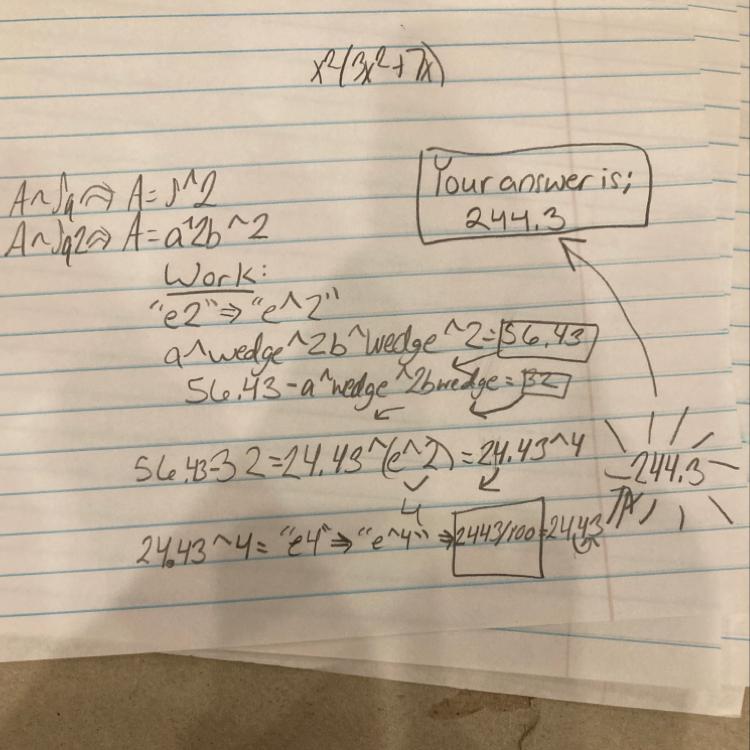 x²(3x²+7x)
Your answer is;
244.3
A=s^2
A=a^2b^2
Work:
"e2"⇒"e^2"
a^wedge^2b^wedge^2=56.43
56.43-a^wedge^2bwedge=32
56.43-32=24.43^(e^2)=24.43^4
4
244.3
24.43^4="e4"⇒"e^4"⇒2443/100=24.43